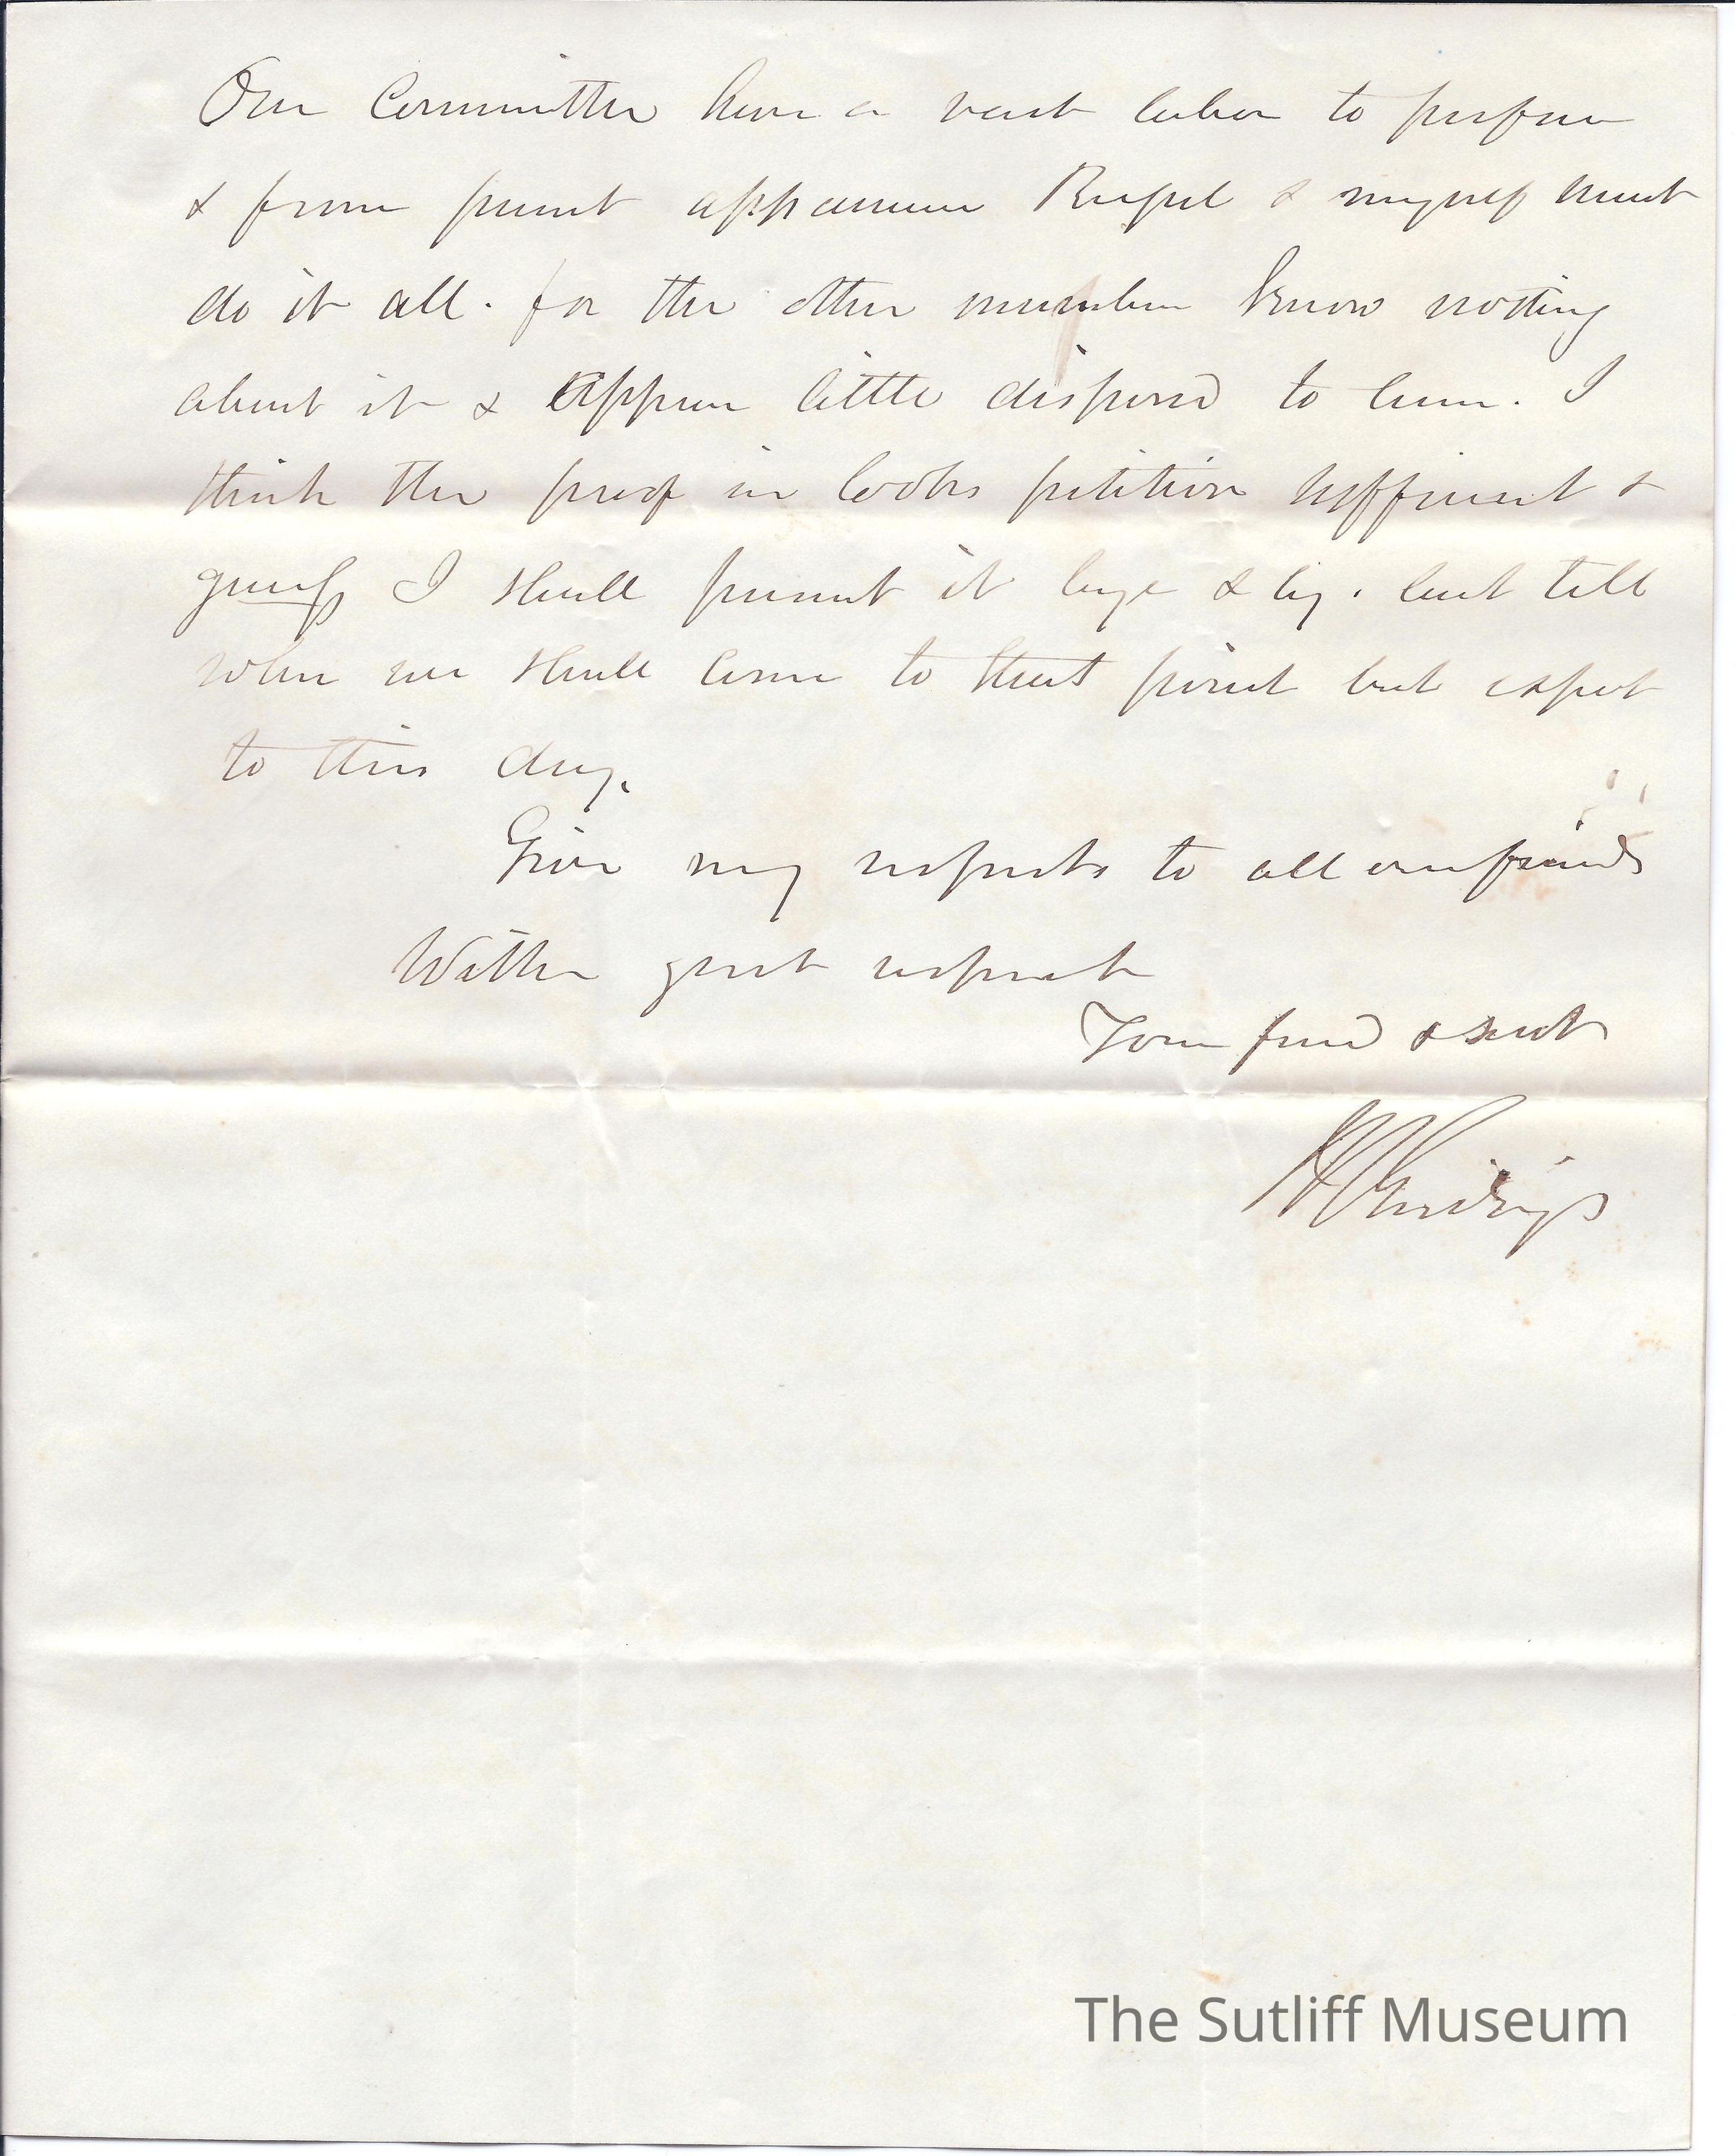 Our Committee have a vast labor to perform
& from present appearance Russel & myself must
do it all. for the other members know nothing
about it & appear little disposed to learn. I
think the proof in Cooks petition sufficient &
guess I shall present it
when we shall come to that point but expect
to this day.
Give my respects to all our friends
With great respect
Your friend & servt
J R Giddings
The Sutliff Museum